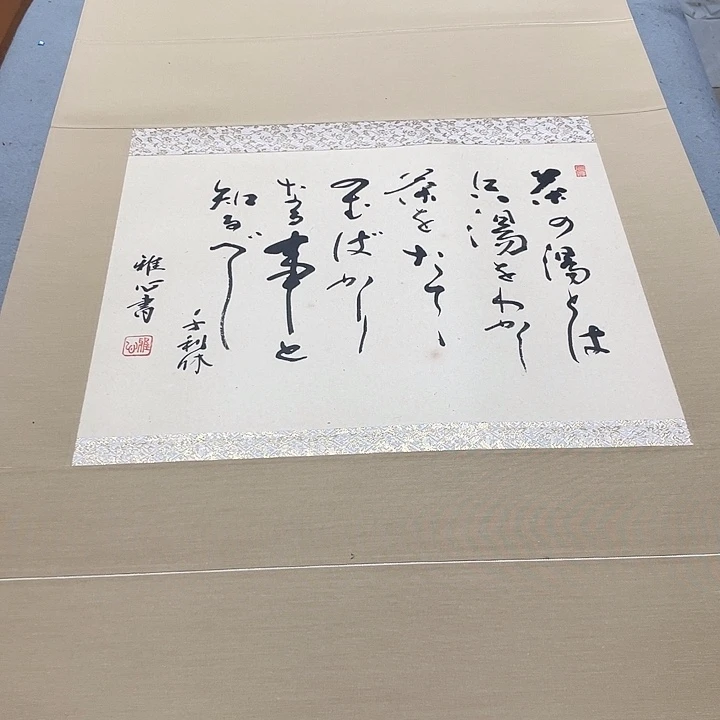 茶の湯とは
只湯をわかし
茶をたてゝ
のむばかり
なる事と
知るべし
千利休
雅心書
雅心